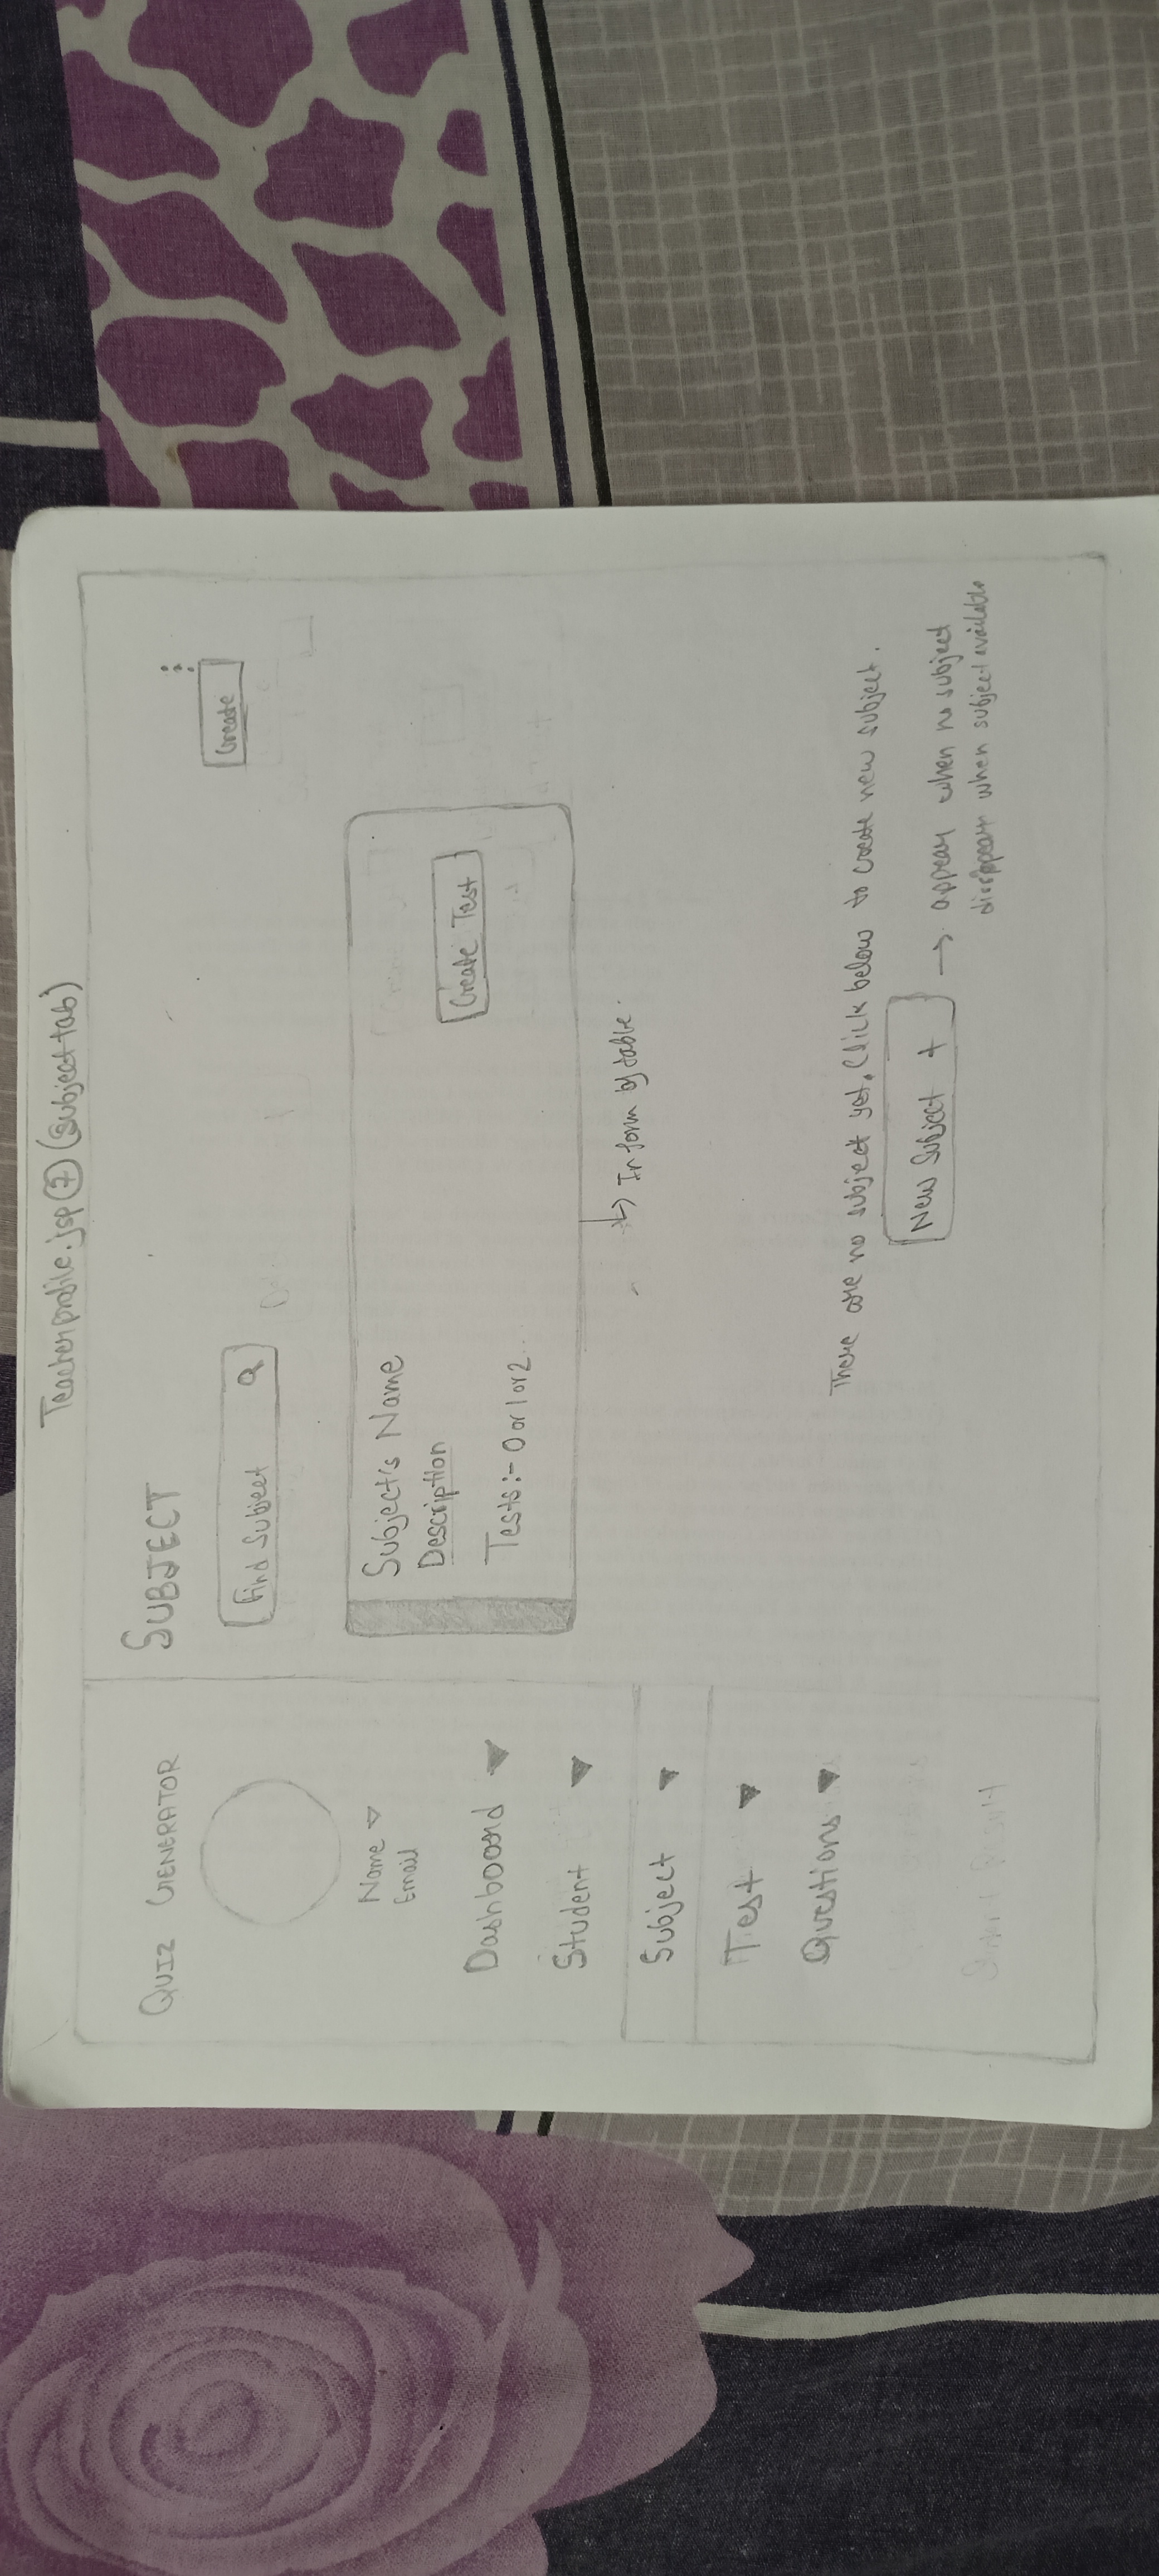 Teacherprofile.jsp 7 (subject tab)
QUIZ GENERATOR
Name
Email
Dashboard
Student
Subject
Test
Questions
SUBJECT
Find Subject
Create
Subject's Name
Description
Tests:- 0 or 1 or 2...
Create Test
In form of table.
There are no subject yet. Click below to create new subject.
New Subject +
→ appear when no subject
disappear when subject available